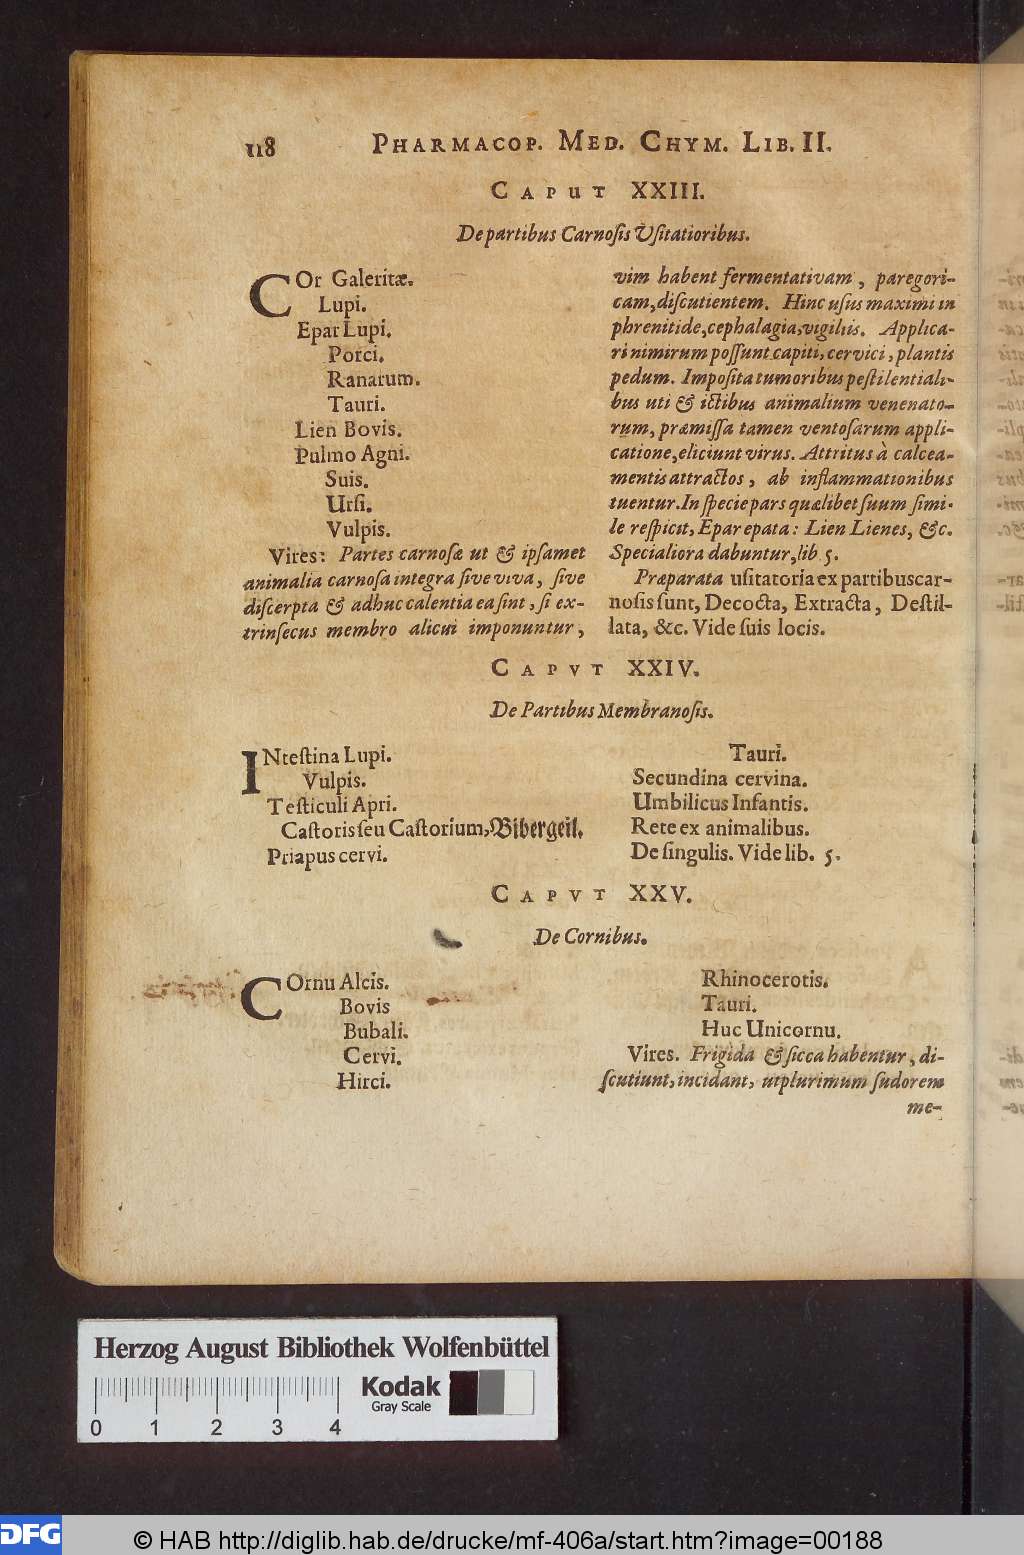 118 PHARMACOP. MED. CHYM. LIB. II.
CAPUT XXIII.
De partibus Carnoſis Uſitatioribus.
COr Galeritæ.
Lupi.
Epar Lupi.
Porci.
Ranarum.
Tauri.
Lien Bovis.
Pulmo Agni.
Suis.
Urſi.
Vulpis.
Vires: Partes carnoſæ ut & ipſamet
animalia carnoſa integra ſive viva, ſive
diſcerpta & adhuc calentia ea ſint, ſi ex-
trinſecus membro alicui imponuntur,
vim habent fermentativam, paregori-
cam, diſcutientem. Hinc uſus maximi in
phrenitide, cephalagia, vigiliis. Applica-
ri nimirum poſſunt capiti, cervici, plantis
pedum. Impoſita tumoribus peſtilentiali-
bus uti & ictibus animalium venenato-
rum, præmiſſa tamen ventoſarum appli-
catione, eliciunt virus. Attritus à calcea-
mentis attractos, ab inflammationibus
tuentur. In ſpecie pars quælibet ſuum ſimi-
le reſpicit, Epar epata: Lien Lienes, &c.
Specialiora dabuntur, lib. 5.
Præparata uſitatoria ex partibus car-
noſis ſunt, Decocta, Extracta, Deſtil-
lata, &c. Vide ſuis locis.
CAPVT XXIV.
De Partibus Membranoſis.
INteſtina Lupi.
Vulpis.
Teſticuli Apri.
Caſtoris ſeu Caſtorium, Bibergeil.
Priapus cervi.
Tauri.
Secundina cervina.
Umbilicus Infantis.
Rete ex animalibus.
De ſingulis. Vide lib. 5.
CAPVT XXV.
De Cornibus.
COrnu Alcis.
Bovis
Bubali.
Cervi.
Hirci.
Rhinocerotis.
Tauri.
Huc Unicornu.
Vires. Frigida & ſicca habentur, di-
ſcutiunt, incidant, utplurimum ſudorem
me-
Herzog August Bibliothek Wolfenbüttel
Kodak
Gray Scale
0 1 2 3 4
DFG © HAB http://diglib.hab.de/drucke/mf-406a/start.htm?image=00188